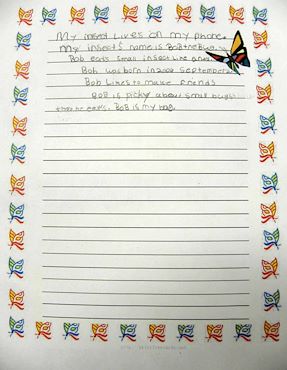 My insect Lives on my phone.
My insect's name is Bob the Bug.
Bob eats small insect like
Bob was born in 2008 September
Bob Likes to make friends
BOB is picky about small bugs
that he eats. Bob is my bug.